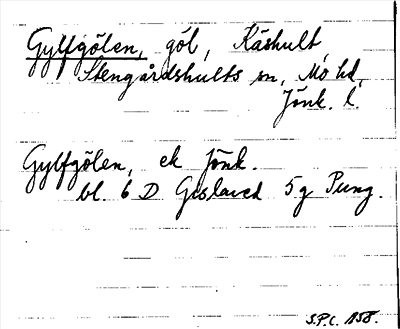 Gylfgölen, göl, Kåshult,
Stengårdshults sn, Mo hd,
Jönk. l.
Gylfgölen, ek Jönk.
bl. 6 D Gislaved 5g Pung.
S.P.C. 1958.